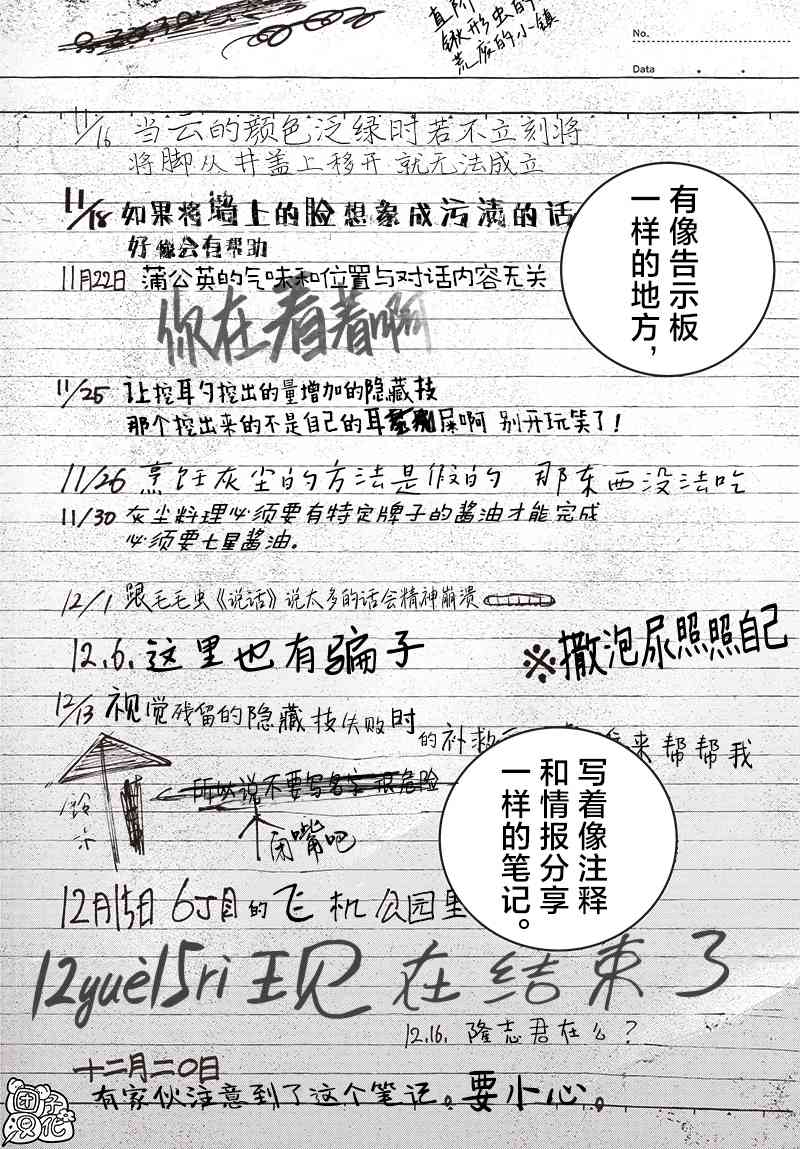 直阶
锹形虫的
荒废的小镇
No.
Data
11/16 当云的颜色泛绿时若不立刻将
将脚从井盖上移开 就无法成立
11/18 如果将墙上的脸想象成污渍的话
好像会有帮助
有像告示板
一样的地方，
11月22日 蒲公英的气味和位置与对话内容无关
你在看着啊
11/25 让挖耳勺挖出的量增加的隐藏技
那个挖出来的不是自己的耳屎啊 别开玩笑了！
11/26 烹饪灰尘的方法是假的 那东西没法吃
11/30 灰尘料理必须要有特定牌子的酱油才能完成
必须要七星酱油。
12/1 跟毛毛虫《说话》说太多的话会精神崩溃
12.6. 这里也有骗子
※撒泡尿照照自己
12/13 视觉残留的隐藏技失败时
的补救 来帮帮我
所以说不要写名字 很危险
闭嘴吧
铃木
写着像注释
和情报分享
一样的笔记。
12月15日 6丁目的飞机公园里
12yuè15rì 现在结束了
12.16. 隆志君在么？
十二月二〇日
有家伙注意到了这个笔记。要小心。
团子汉化